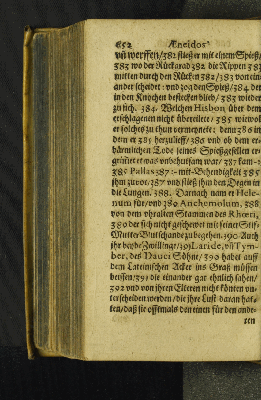 652 Æneidos
uñ werffen/382 stieß er mit einem Spieß/
383 wo der Rückgrad 382 die Rippen 383
mitten durch den Rücken 382/383 von ein-
ander scheidet: und zog den Spieß/384 der
in den Knochen bestecken blieb/383 wieder
zu sich. 384. Welchen Hisbon über dem
erschlagenen nicht übereilete/385 wiewol
er solches zu thun vermeynete: denn 386 in
dem er 385 herzulieff/386 und ob dem er-
bärmlichen Tode seines Spießgesellen er-
grimmet er was unbehutsam war/387 kam
Pallas 387 mit Behendigkeit 385
ihm zuvor/387 und stieß ihm den Degen in
die Lungen. 388. Darnach nam er Hele-
num für/und 389 Anchemolum, 388
von dem uhralten Stammen des Rhœti,
389 der sich nicht gescheuet mit seiner Stif-
Mutter Blutschande zu begehen. 390 Auch
ihr beyde Zwillinge/391 Laride, uñ Tym-
ber, des Dauci Söhne/390 habet auff
dem Lateinischen Acker ins Graß müssen
beissen/391 die einander gar ehnlich sahen/
392 und von ihren Elteren nicht kõnten un-
terscheiden werden/die ihre Lust daran hat-
ten/daß sie offtmals den einen für den ande-
ren